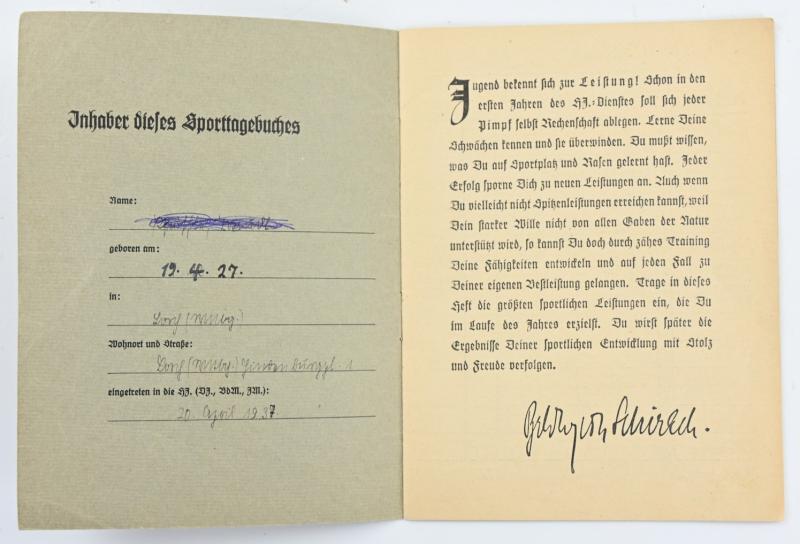 Inhaber dieses Sporttagebuches
Name:
geboren am:
19. 4. 27.
in:
Lorch (Wttbg.)
Wohnort und Straße:
Lorch (Wttbg.) Hindenburgpl. 1
eingetreten in die HJ. (DJ., BdM., JM.):
20. April 1937.
Jugend bekennt sich zur Leistung! Schon in den
ersten Jahren des HJ.-Dienstes soll sich jeder
Pimpf selbst Rechenschaft ablegen. Lerne Deine
Schwächen kennen und sie überwinden. Du mußt wissen,
was Du auf Sportplatz und Rasen gelernt hast. Jeder
Erfolg sporne Dich zu neuen Leistungen an. Auch wenn
Du vielleicht nicht Spitzenleistungen erreichen kannst, weil
Dein starker Wille nicht von allen Gaben der Natur
unterstützt wird, so kannst Du doch durch zähes Training
Deine Fähigkeiten entwickeln und auf jeden Fall zu
Deiner eigenen Bestleistung gelangen. Trage in dieses
Heft die größten sportlichen Leistungen ein, die Du
im Laufe des Jahres erzielst. Du wirst später die
Ergebnisse Deiner sportlichen Entwicklung mit Stolz
und Freude verfolgen.
Baldur von Schirach.